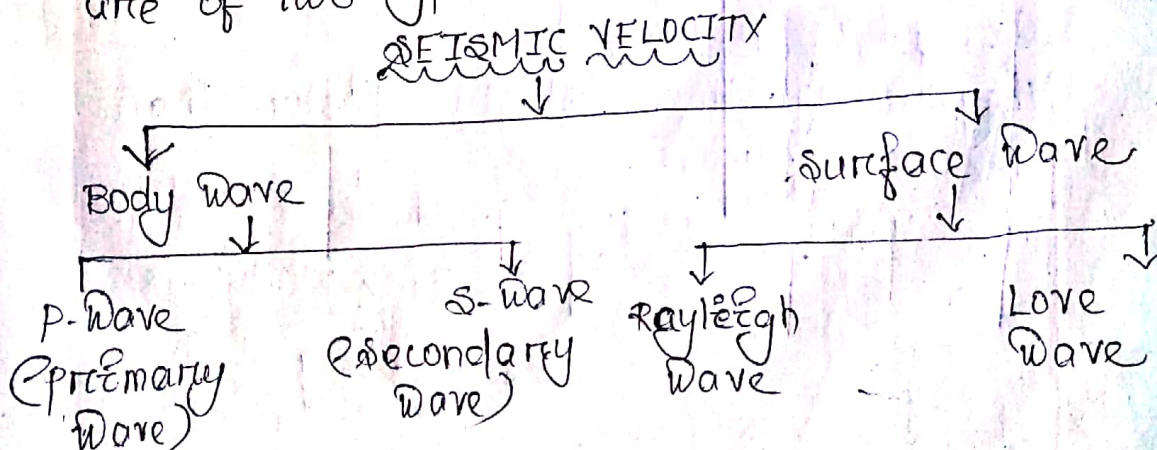 are of two
SEISMIC VELOCITY
Body Wave
Surface Wave
P-Wave
(primary
Wave)
S-Wave
(Secondary
Wave)
Rayleigh
Wave
Love
Wave